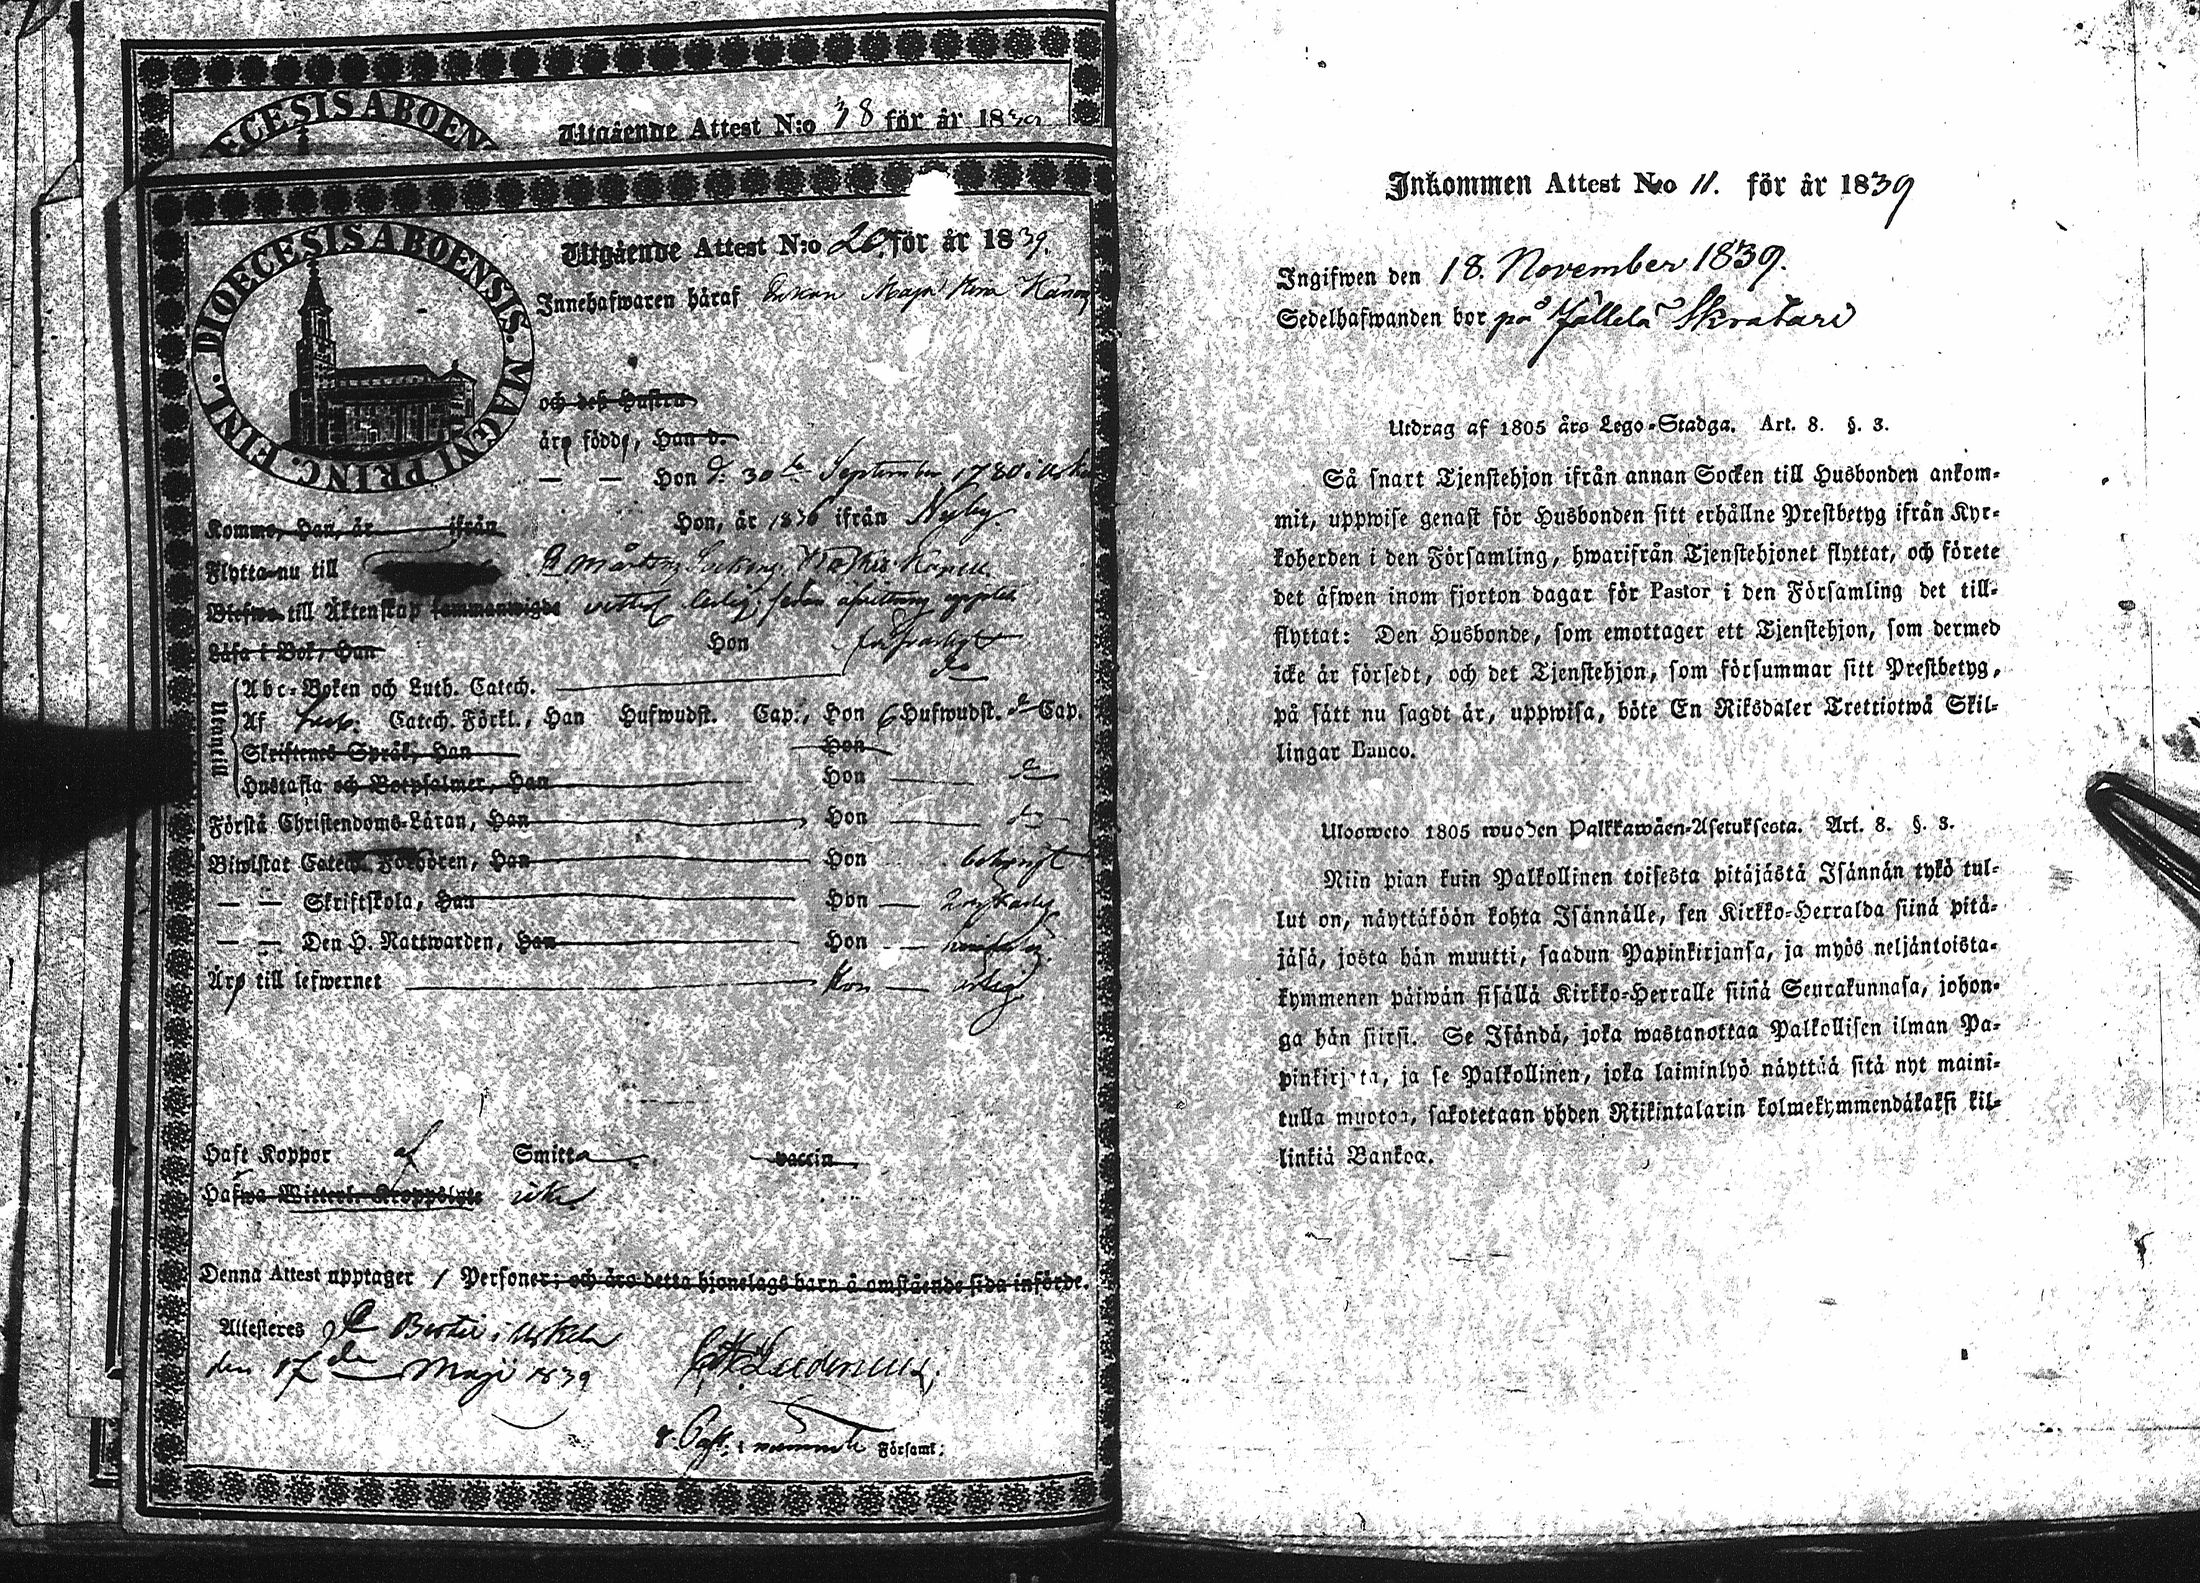 ECESIS ABOEN
Utgående Attest N:o 38 för år 1839
DIOECESIS ABOENSIS. MAGNI PRINC. FINL.
Utgående Attest N:o 20. för år 1839.
Innehafwaren häraf Enkan Maja
och deß Hustru
äro födde, Han d.
— — Hon d. 30de September 1780 i
Komme, Han, år ifrån Hon, år 1836 ifrån Nyby.
Flytta nu till St Mårtens Sockens Kapell
Blefwo till Äktenskap sammanwigde ledig
Läsa i Bok, Han Hon försvarligt
Utantill
Abc-Boken och Luth. Catech. do
Af Catech. Förkl., Han Hufwudst. Cap., Hon 6 Hufwudst. do Cap.
Skriftenes Språk, Han Hon
Hustafla och Botpsalmer, Han Hon do
Förstå Christendoms-Läran, Han Hon do
Biwistat Catech. Förhören, Han Hon
— — Skriftskola, Han Hon
— — Den H. Nattwarden, Han Hon
Äro till lefwernet Hon ärlig
Haft Koppor af Smitta vaccin
Hafwa Witterl. Kroppslyte icke
Denna Attest upptager 1 Personer; och äro detta hjonelags barn å omstående sida införde.
Attesteras af Bertil i Uskela
den 17de Maji 1839
v. Past. i nämnde Församl:
Inkommen Attest No 11. för år 1839
Ingifwen den 18. November 1839.
Sedelhafwanden bor på Jällelä Skratari
Utdrag af 1805 års Lego-Stadga. Art. 8. §. 3.
Så snart Tjenstehjon ifrån annan Socken till Husbonden ankom-
mit, uppwise genast för Husbonden sitt erhållne Prestbetyg ifrån Kyr-
koherden i den Församling, hwarifrån Tjenstehjonet flyttat, och förete
det äfwen inom fjorton dagar för Pastor i den Församling det till-
flyttat: Den Husbonde, som emottager ett Tjenstehjon, som dermed
icke är försedt, och det Tjenstehjon, som försummar sitt Prestbetyg,
på sätt nu sagdt är, uppwisa, böte En Riksdaler Trettiotwå Skil-
lingar Banco.
Ulosweto 1805 wuoden Palkkawäen-Asetuksesta. Art. 8. §. 3.
Niin pian kuin Palkollinen toisesta pitäjästä Isännän tykö tul-
lut on, näyttäköön kohta Isännälle, sen Kirkko-Herralda siinä pitä-
jäsä, josta hän muutti, saadun Papinkirjansa, ja myös neljäntoista-
kymmenen päiwän sisällä Kirkko-Herralle siinä Seurakunnasa, johon-
ga hän siirsi. Se Isändä, joka wastanottaa Palkollisen ilman Pa-
pinkirjata, ja se Palkollinen, joka laiminlyö näyttää sitä nyt maini-
tulla muotoa, sakotetaan yhden Riikintalarin kolmekymmendäkaksi kil-
linkiä Bankoa.